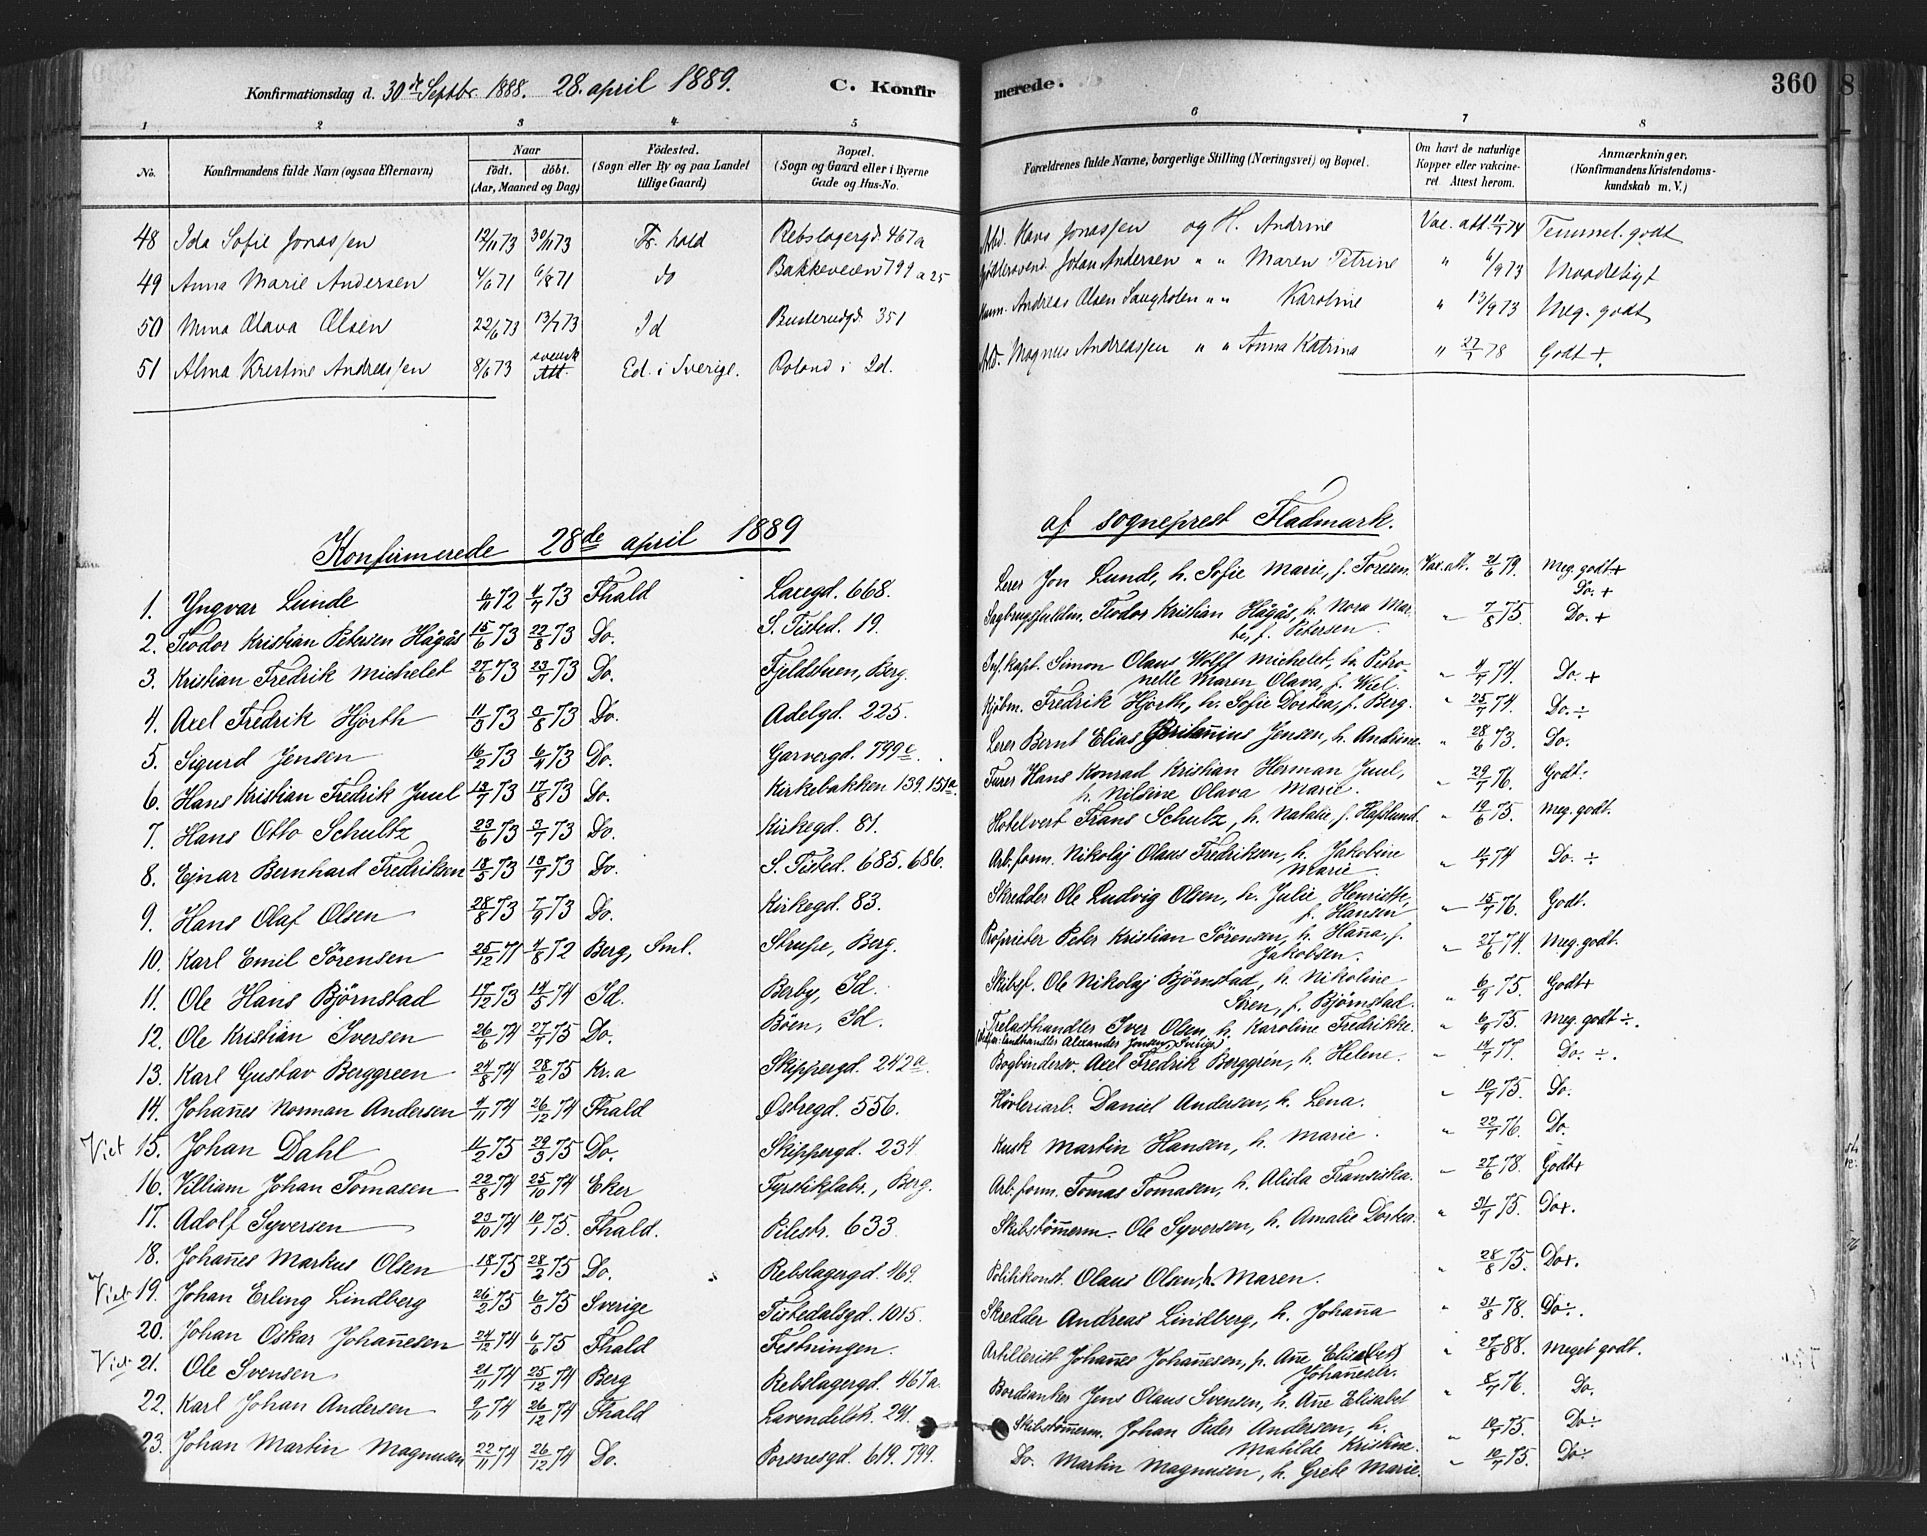 Konfirmationsdag d. 30de Septbr. 1888. 28. april 1889. C. Konfir
merede. 360
1 2 3 4 5
6 7 8
No. Konfirmandens fulde Navn (ogsaa Efternavn) Naar født. døbt. (Aar, Maaned og Dag) Fødested. (Sogn eller By og paa Landet tillige Gaard) Bopæl. (Sogn og Gaard eller i Byerne Gade og Hus-No.
Forældrenes fulde Navne, borgerlige Stilling (Næringsvei) og Bopæl. Om havt de naturlige Kopper eller vakcineret. Attest herom. Anmærkninger. (Konfirmandens Kristendomskundskab m. V.)
48 Ida Sofie Jonassen 12/11 73 30/11 73 Fr.hald Rebslagergd. 467a
Arbd. Hans Jonassen og H. Andrine Vac. att. 11/7 74 Temmel. godt
49 Anna Marie Andersen 4/6 71 6/8 71 do Bakkeveien 799 a 25
Johan Andersen " " Maren Petrine " 6/9 73 Maadeligt
50 Mina Olava Olsen 22/6 73 13/7 73 Id Busterudgd. 351
Andreas Olsen Saugholen " " Karoline " 13/9 73 Meg. godt
51 Alma Kristine Andreassen 8/6 73 svensk Att. Ed. i Sverige. Roland i Id.
Arbd. Magnus Andreassen " " Anna Katrina " 27/7 78 Godt +
Konfirmerede 28de april 1889
af sogneprest Fladmark.
1. Yngvar Lunde 6/11 72 4/7 73 Fhald Laregd. 668.
Lærer Jon Lunde, h. Sofie Marie, f. Toresen. Vac. att. 21/6 79. Meg. godt +
Do. +
2. Teodor Kristian Petersen Hågås 15/6 73 22/8 73 Do. S. Tisted. 19.
Sagbrugsfuldm. Teodor Kristian Hågås, h. Nora Marte, f. Petersen. " 7/8 75. Do. +
3. Kristian Fredrik Michelet 27/6 73 23/7 73 Do. Fjeldstuen, Berg.
Inf. kapt. Simon Olaus Wolff Michelet, h. Petronelle Maren Olava, f. Wiel. " 4/7 74. Do. +
4. Axel Fredrik Hjorth 11/3 73 3/8 73 Do. Adelgd. 225.
Kjøbm. Fredrik Hjorth, h. Sofie Dortea, f. Berg. " 25/7 74. Do. ÷
5. Sigurd Jensen 16/2 73 6/4 73 Do. Garvergd. 799c.
Lærer Bernt Elias Jensen, h. Andrine. " 28/6 73. Do.
6. Hans Kristian Fredrik Juul 13/7 73 17/8 73 Do. Kirkebakken 139. 151a.
Furer Hans Konrad Kristian Herman Juul, h. Nilsine Olava Marie. " 29/7 76. Godt.
7. Hans Otto Schultz 23/6 73 3/7 73 Do. Kirkegd. 81.
Hotelvert Frans Schulz, h. Natalie f. Hafslund. " 19/6 75. Meg. godt.
8. Ejnar Bernhard Fredriksen 18/5 73 13/7 73 Do. S. Tisted. 685. 686.
Arb. form. Nikolaj Olaus Fredriksen, h. Jakobine Marie. " 4/7 74 Do. ÷
9. Hans Olaf Olsen 28/8 73 7/9 73 Do. Kirkegd. 83.
Skredder Ole Ludvig Olsen, h. Julie Henriette, f. Hansen " 15/7 76. Godt.
10. Karl Emil Sörensen 25/12 71 4/8 72 Berg, Sml. Strupe, Berg.
Proprietær Peter Kristian Sörensen, h. Hanna, f. Jakobsen. " 27/6 74. Meg. godt.
11. Ole Hans Björnstad 17/12 73 14/5 74 Id. Berby, Id.
Skibsf. Ole Nikolaj Björnstad, h. Nikoline Siren, f. Björnstad. " 6/9 75. Godt +
12. Ole Kristian Iversen 26/6 74 27/7 75 Do. Böen, Id.
Trelasthandler Iver Olsen, h. Karoline Fredrikke. " 6/9 75. Meg. godt ÷.
landhandler Alexander Jensen, Sverige)
13. Karl Gustav Berggreen 24/8 74 28/2 75 Kr.a Skippergd. 242a.
Bogbindersv. Axel Fredrik Berggrén, h. Helene. " 14/7 77. Do. ÷.
14. Johannes Norman Andersen 4/11 74 26/12 74 Fhald Østregd. 556.
Hövleriarb. Daniel Andersen, h. Lena. " 19/7 75. Do.
Viet 15. Johan Dahl 11/2 75 29/3 75 Do. Skippergd. 234
Kusk Martin Hansen, h. Marie. " 22/7 76. Do.
16. Villiam Johan Tomasen 22/8 74 25/10 74 Eker Fyrstikfabr., Berg.
Arb. form. Tomas Tomasen, h. Alida Fransiska. " 27/6 78. Godt +
17. Adolf Syversen 23/10 74 10/1 75. Fhald. Pilestr. 633.
Skibstömmerm. Ole Syversen, h. Amalie Dortea. " 31/7 75. Do +.
18. Johannes Markus Olsen 18/1 75 28/2 75 Do. Rebslagergd. 469.
Politikonst. Olaus Olsen, h. Maren. " 28/8 75. Do +.
Viet 19. Johan Erling Lindberg 26/2 75 6/3 75 Sverige Tistedalsgd. 1015.
Skredder Andreas Lindberg, h. Johanna " 31/8 78. Do ÷.
20. Johan Oskar Johannesen 24/12 74 6/6 75 Fhald Festningen.
Artillerist Johannes Johannesen, p. Ane Elisabet Johannesdr. " 27/8 88. Meget godt.
Viet 21. Ole Svensen 21/11 74 25/12 74 Berg Rebslagergd. 467a.
Bordsanker Jens Olaus Svensen, h. Ane Elisabet " 8/7 76. Do.
22. Karl Johan Andersen 9/11 74 26/12 74 Fhald Lavendelstr. 241.
Skibstömmerm. Johan Peder Andersen, h. Matilde Kristine. " 19/7 75. Do ÷
23. Johan Martin Magnusen 22/11 74 26/12 74 Do. Porsnesgd. 619. 799.
Do. Martin Magnusen, h. Grete Marie. " 19/7 75. Do ÷